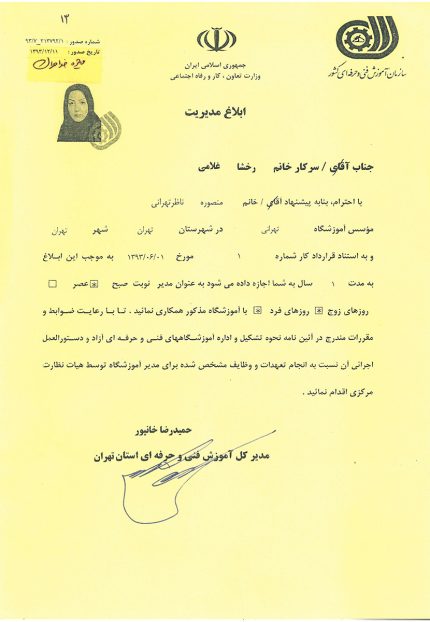 ۱۴
شماره صدور : ۹۳/۷_۲۱۳۷۹۲/۱
تاریخ صدور : ۱۳۹۳/۱۲/۱۱
جمهوری اسلامی ایران
وزارت تعاون ، کار و رفاه اجتماعی
سازمان آموزش فنی و حرفه ای کشور
ابلاغ مدیریت
جناب آقای / سرکار خانم رخشا غلامی
با احترام، بنابه پیشنهاد آقای / خانم منصوره ناظرتهرانی
مؤسس آموزشگاه تهرانی در شهرستان تهران شهر تهران
و به استناد قرارداد کار شماره ۱ مورخ ۱۳۹۳/۰۶/۰۱ به موجب این ابلاغ
به مدت ۱ سال به شما اجازه داده می شود به عنوان مدیر نوبت صبح عصر
روزهای زوج روزهای فرد با آموزشگاه مذکور همکاری نمائید . تا با رعایت ضوابط و
مقررات مندرج در آئین نامه نحوه تشکیل و اداره آموزشگاههای فنی و حرفه ای آزاد و دستورالعمل
اجرائی آن نسبت به انجام تعهدات و وظایف مشخص شده برای مدیر آموزشگاه توسط هیات نظارت
مرکزی اقدام نمائید .
حمیدرضا خانپور
مدیر کل آموزش فنی و حرفه ای استان تهران